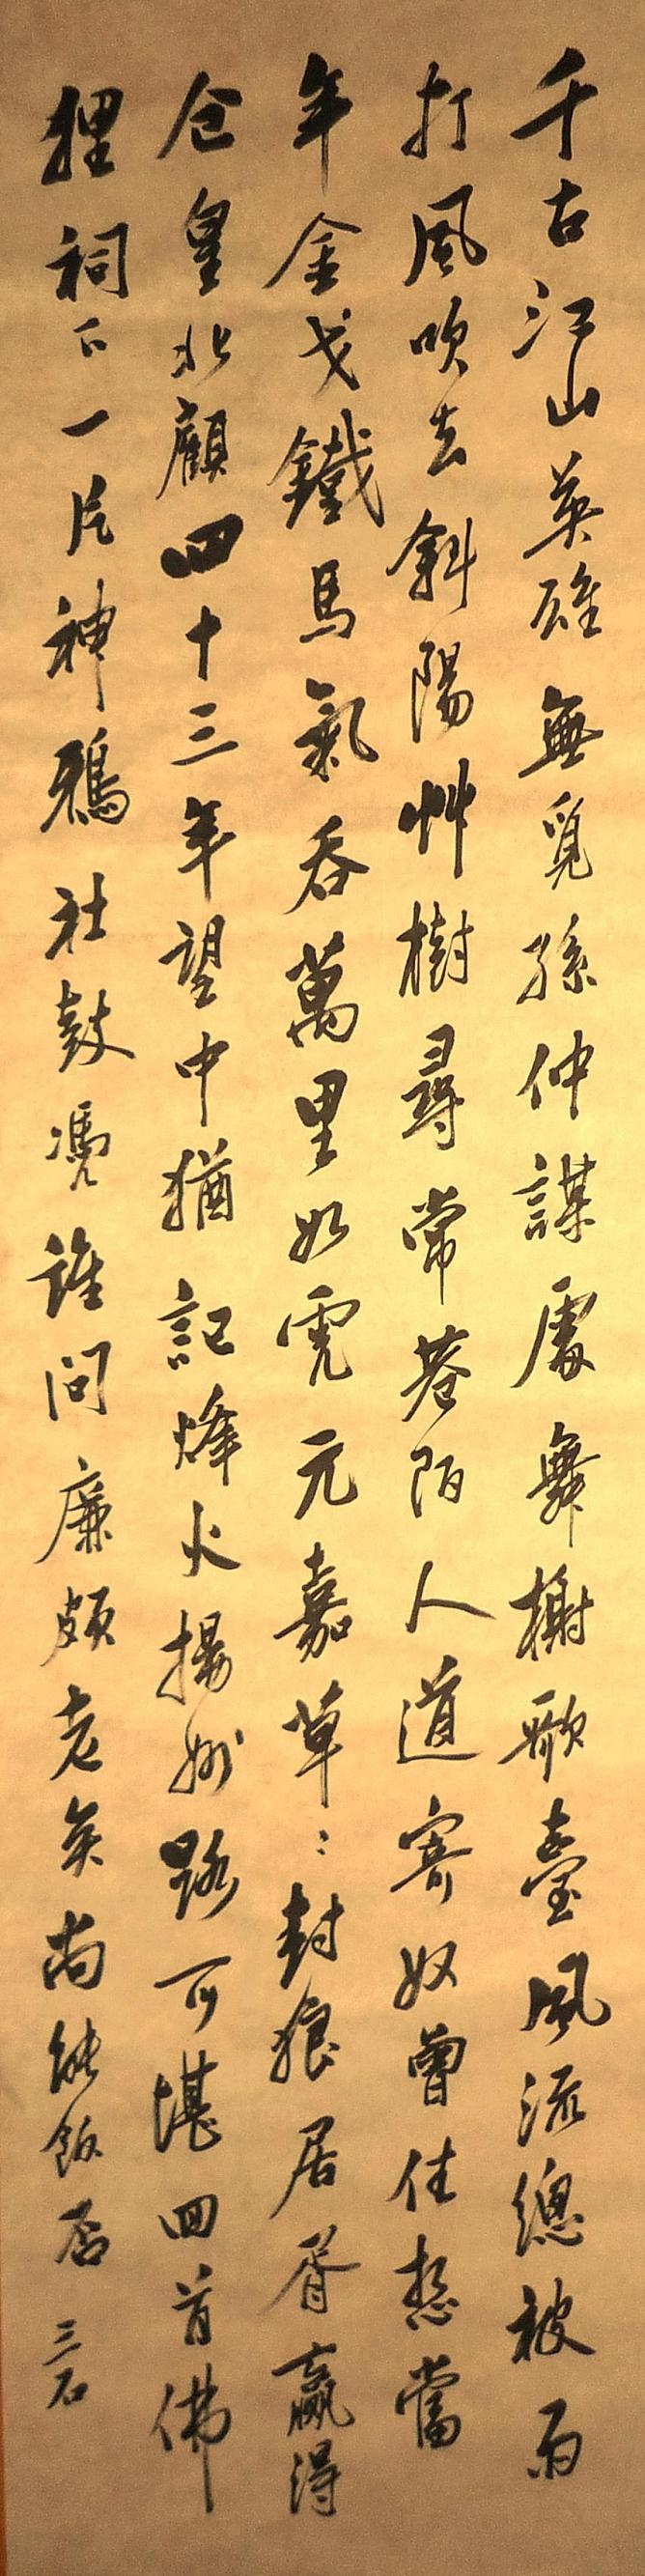 千古江山英雄無覓孫仲謀處舞榭歌臺風流總被雨
打風吹去斜陽艸樹尋常巷陌人道寄奴曾住想當
年金戈鐵馬氣吞萬里如虎元嘉草〻封狼居胥贏得
仓皇北顧四十三年望中猶記烽火揚州路可堪回首佛
狸祠下一片神鴉社鼓憑誰問廉頗老矣尚能飯否 三石